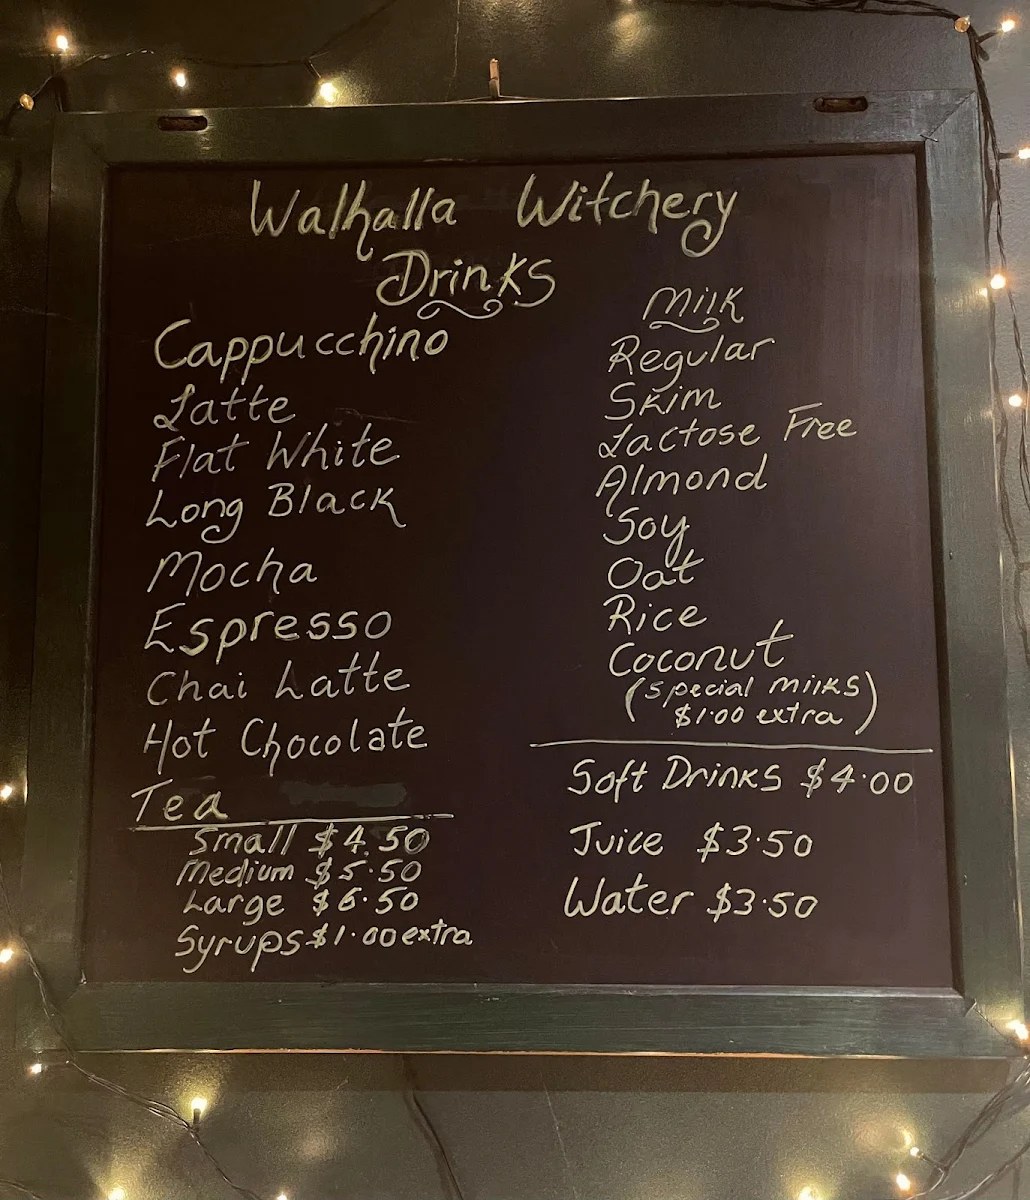 Walhalla Witchery
Drinks
Cappucchino
Latte
Flat White
Long Black
Mocha
Espresso
Chai Latte
Hot Chocolate
Tea
Small $4.50
Medium $5.50
Large $6.50
Syrups $1.00 extra
Milk
Regular
Skim
Lactose Free
Almond
Soy
Oat
Rice
Coconut
(special milks
$1.00 extra)
Soft Drinks $4.00
Juice $3.50
Water $3.50